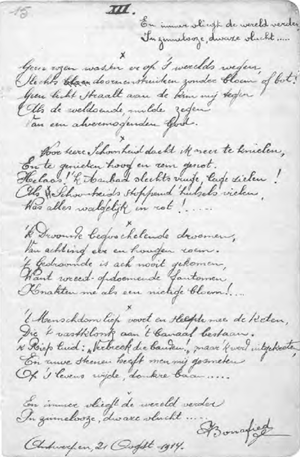 15
III.
En immer vliegt de wereld verder
In zinnelooze, dwaze vlucht.....
x
Geen rozen wachten er op 's werelds wegen,
Slechts doorenstruiken zonder bloem of bot!
Geen licht straalt aan de kim mij tegen
Als de weldoende milde zegen
Van een alvermogenden God.
x
Hoe kere Schoonheid dacht ik neer te knielen,
En te genieten hoog en rein genot.
Helaas! 'k Aanbad slechts vuige lage zielen!
Als Schoonheids hulsels vielen,
Was alles walgelijk en rot!......
x
'k Droomde begoochelende droomen,
Van achting eer en hoogen roem.
't Gedroomde is ach nooit gekomen,
Want wreed opdoemende fantomen
Knakten me als een nietige bloem!....
x
't Menschdom liep voort en sleepte mee de keten,
Die 't vastklonk aan 't banaal bestaan.
'k Riep luid: "Verbreek die banden!", maar
En ruwe steenen heeft men mij gesmeten
Op 's levens wijde, donkere baan.....
x
En immer vliegt de wereld verder
In zinnelooze, dwaze vlucht.....
Antwerpen, 21 Oogst 1914.